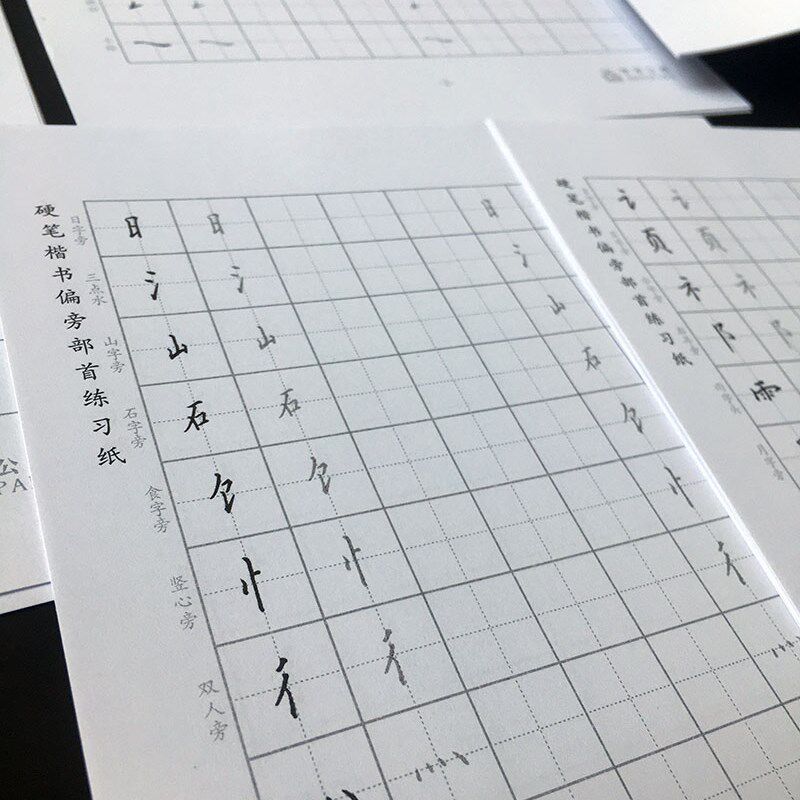 硬笔楷书偏旁部首练习纸
日字旁
日 日 日
三点水
氵 氵 氵
山字旁
山 山 山
石字旁
石 石 石
食字旁
饣 饣 饣
竖心旁
忄 忄 忄
双人旁
彳 彳 彳
灬 灬 灬
硬笔楷书偏旁部首练习纸
讠 讠
页 页
礻 礻
阝 阝
雨
月字旁
公
PA